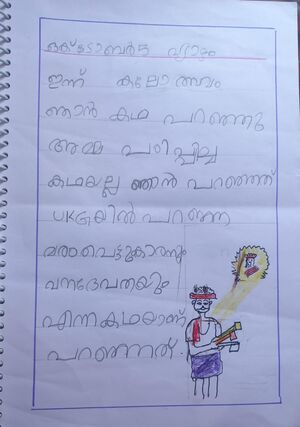 ഒക്ടോബർ 5 വ്യാഴം
ഇന്ന് കലോത്സവം
ഞാൻ കഥ പറഞ്ഞു
അമ്മ പഠിപ്പിച്ച
കഥയല്ല ഞാൻ പറഞ്ഞത്
UKGയിൽ പറഞ്ഞ
മരംവെട്ടുകാരനും
വനദേവതയും
എന്ന കഥയാണ്
പറഞ്ഞത്.